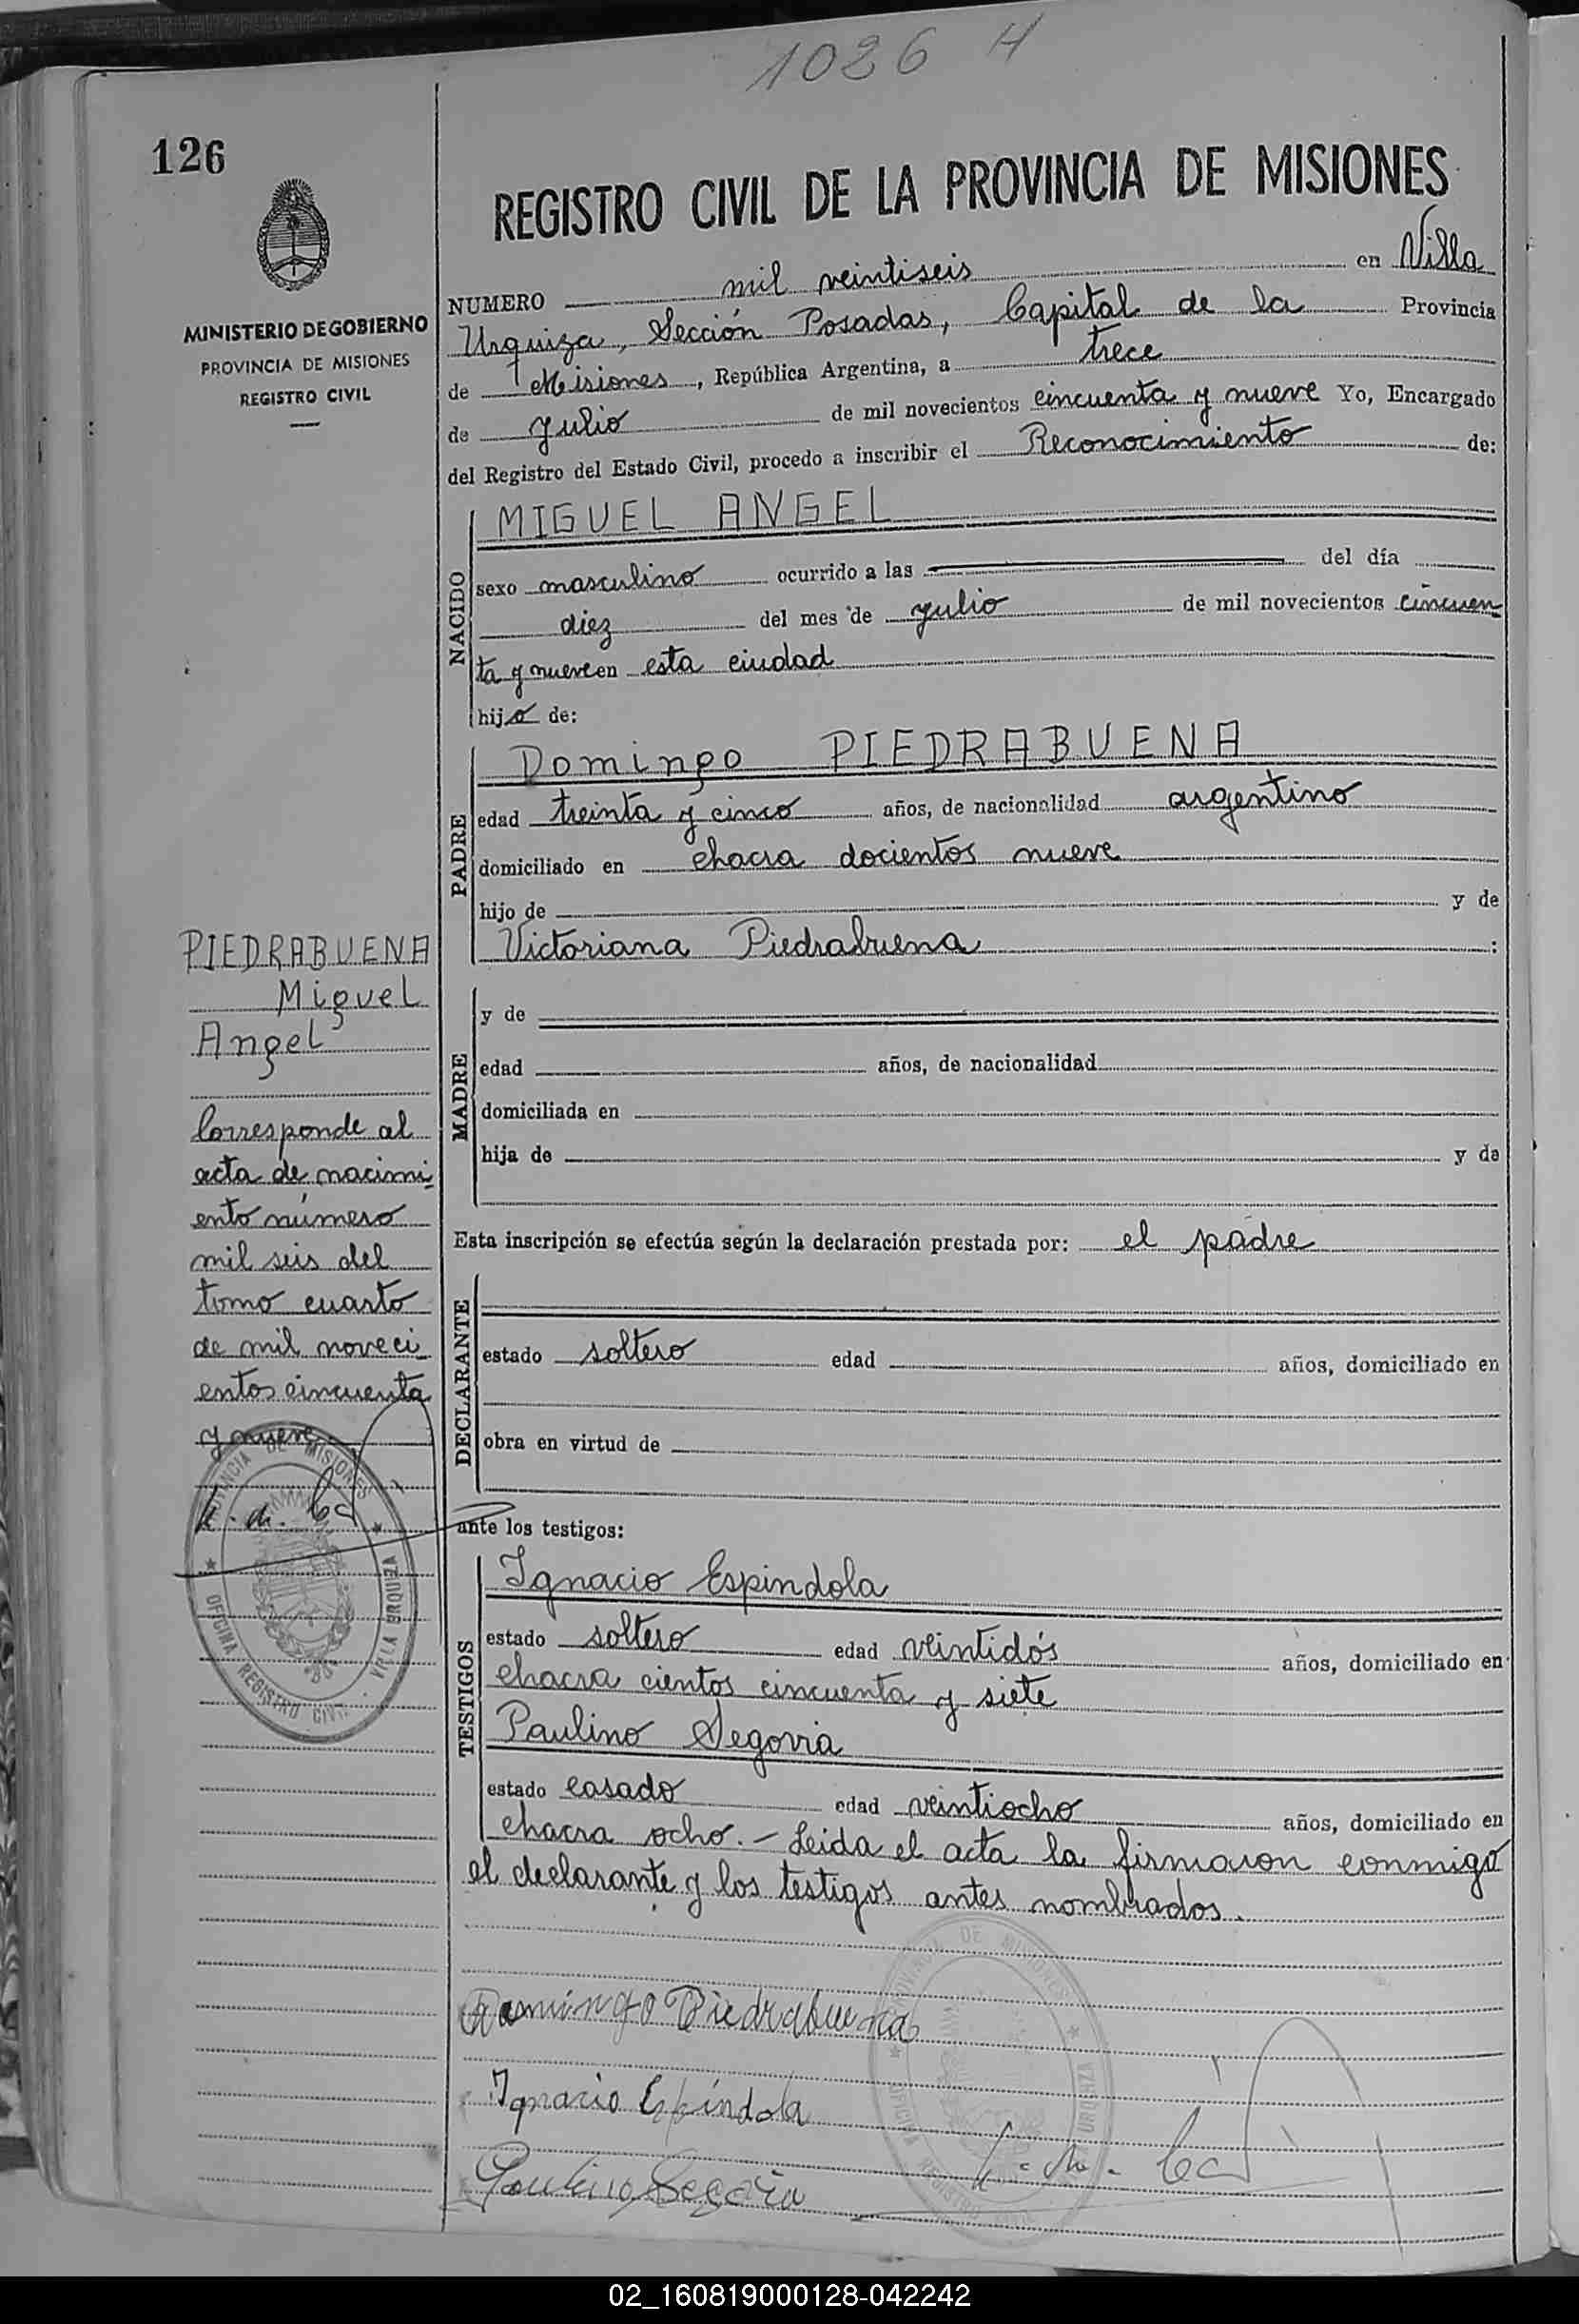 1026 H
126
MINISTERIO DE GOBIERNO
PROVINCIA DE MISIONES
REGISTRO CIVIL
REGISTRO CIVIL DE LA PROVINCIA DE MISIONES
NUMERO mil veintiseis en Villa
Urquiza, Sección Posadas, Capital de la Provincia
de Misiones, República Argentina, a trece
de Julio de mil novecientos cincuenta y nueve Yo, Encargado
del Registro del Estado Civil, procedo a inscribir el Reconocimiento de:
NACIDO
MIGUEL ANGEL
sexo masculino ocurrido a las del día
diez del mes de Julio de mil novecientos cincuen
ta y nueve en esta ciudad
hijo de:
PADRE
Domingo PIEDRABUENA
edad treinta y cinco años, de nacionalidad argentino
domiciliado en chacra docientos nueve
hijo de y de
Victoriana Piedrabuena :
MADRE
y de
edad años, de nacionalidad
domiciliada en
hija de y de
Esta inscripción se efectúa según la declaración prestada por: el padre
DECLARANTE
estado soltero edad años, domiciliado en
obra en virtud de
ante los testigos:
TESTIGOS
Ignacio Espindola
estado soltero edad veintidós años, domiciliado en
chacra cientos cincuenta y siete
Paulino Segovia
estado casado edad veintiocho años, domiciliado en
chacra ocho.- Leida el acta la firmaron conmigo
el declarante y los testigos antes nombrados.
Domingo Piedrabuena
Ignacio Espíndola
Paulino Segovia
PROVINCIA DE MISIONES
OFICINA REGISTRO CIVIL VILLA URQUIZA
PIEDRABUENA
Miguel
Angel
Corresponde al
acta de nacimi
ento número
mil seis del
tomo cuarto
de mil noveci
entos cincuenta
y nueve.
PROVINCIA DE MISIONES
OFICINA REGISTRO CIVIL VILLA URQUIZA
02_160819000128-042242